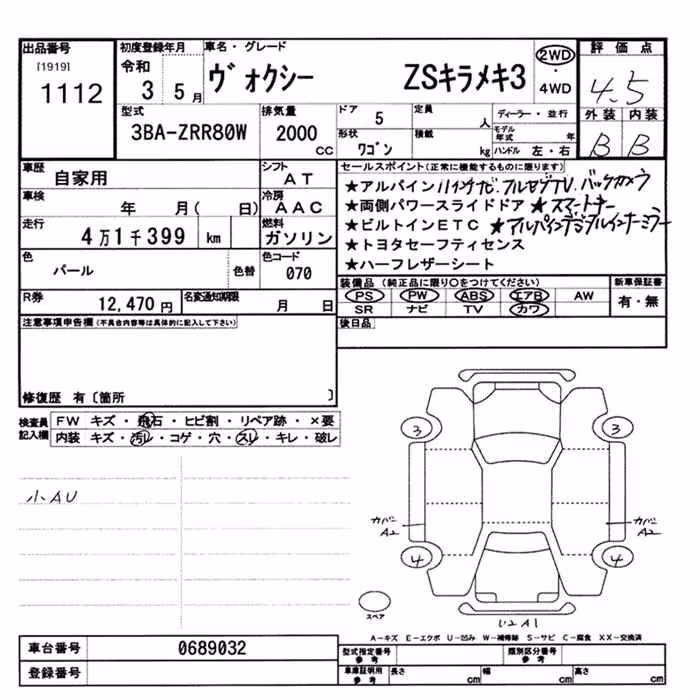 出品番号
[1919]
1112
初度登録年月
令和
3 5 月
車名・グレード
ヴォクシー ZSキラメキ3
2WD
・
4WD
評価点
4.5
外装 内装
B B
型式
3BA-ZRR80W
排気量
2000
CC
ドア 5
定員 人
ディーラー・並行
形状
ワゴン
積載 kg
モデル年式 年
ハンドル 左・右
車歴
自家用
シフト
AT
車検 年 月( 日)
冷房
AAC
走行
4万1千399 km
燃料
ガソリン
色
パール
色替
色コード
070
R券 12,470円
名変通知期限 月 日
セールスポイント(正常に機能するものに限ります)
★アルパイン11インチナビ、フルセグTV、バックカメラ
★両側パワースライドドア ★スマートキー
★ビルトインETC ★アルパインデジタルインナーミラー
★トヨタセーフティセンス
★ハーフレザーシート
装備品(純正品に限り○をつけてください)
PS PW ABS エアB AW
SR ナビ TV カワ
新車保証書
有・無
後日品
注意事項申告欄(不具合内容等は具体的に記入して下さい)
修復歴 有〔箇所 〕
検査員記入欄
FW キズ・飛石・ヒビ割・リペア跡・×要
内装 キズ・汚レ・コゲ・穴・スレ・キレ・破レ
小AU
3 3
カバー A2
カバー A2
4 4
スペア
リレA1
A-キズ E-エクボ U-凹み W-補修跡 S-サビ C-腐食 XX-交換済
車台番号 0689032
登録番号
型式指定番号 参考
類別区分番号 参考
車庫証明用 参考
長さ cm
幅 cm
高さ cm